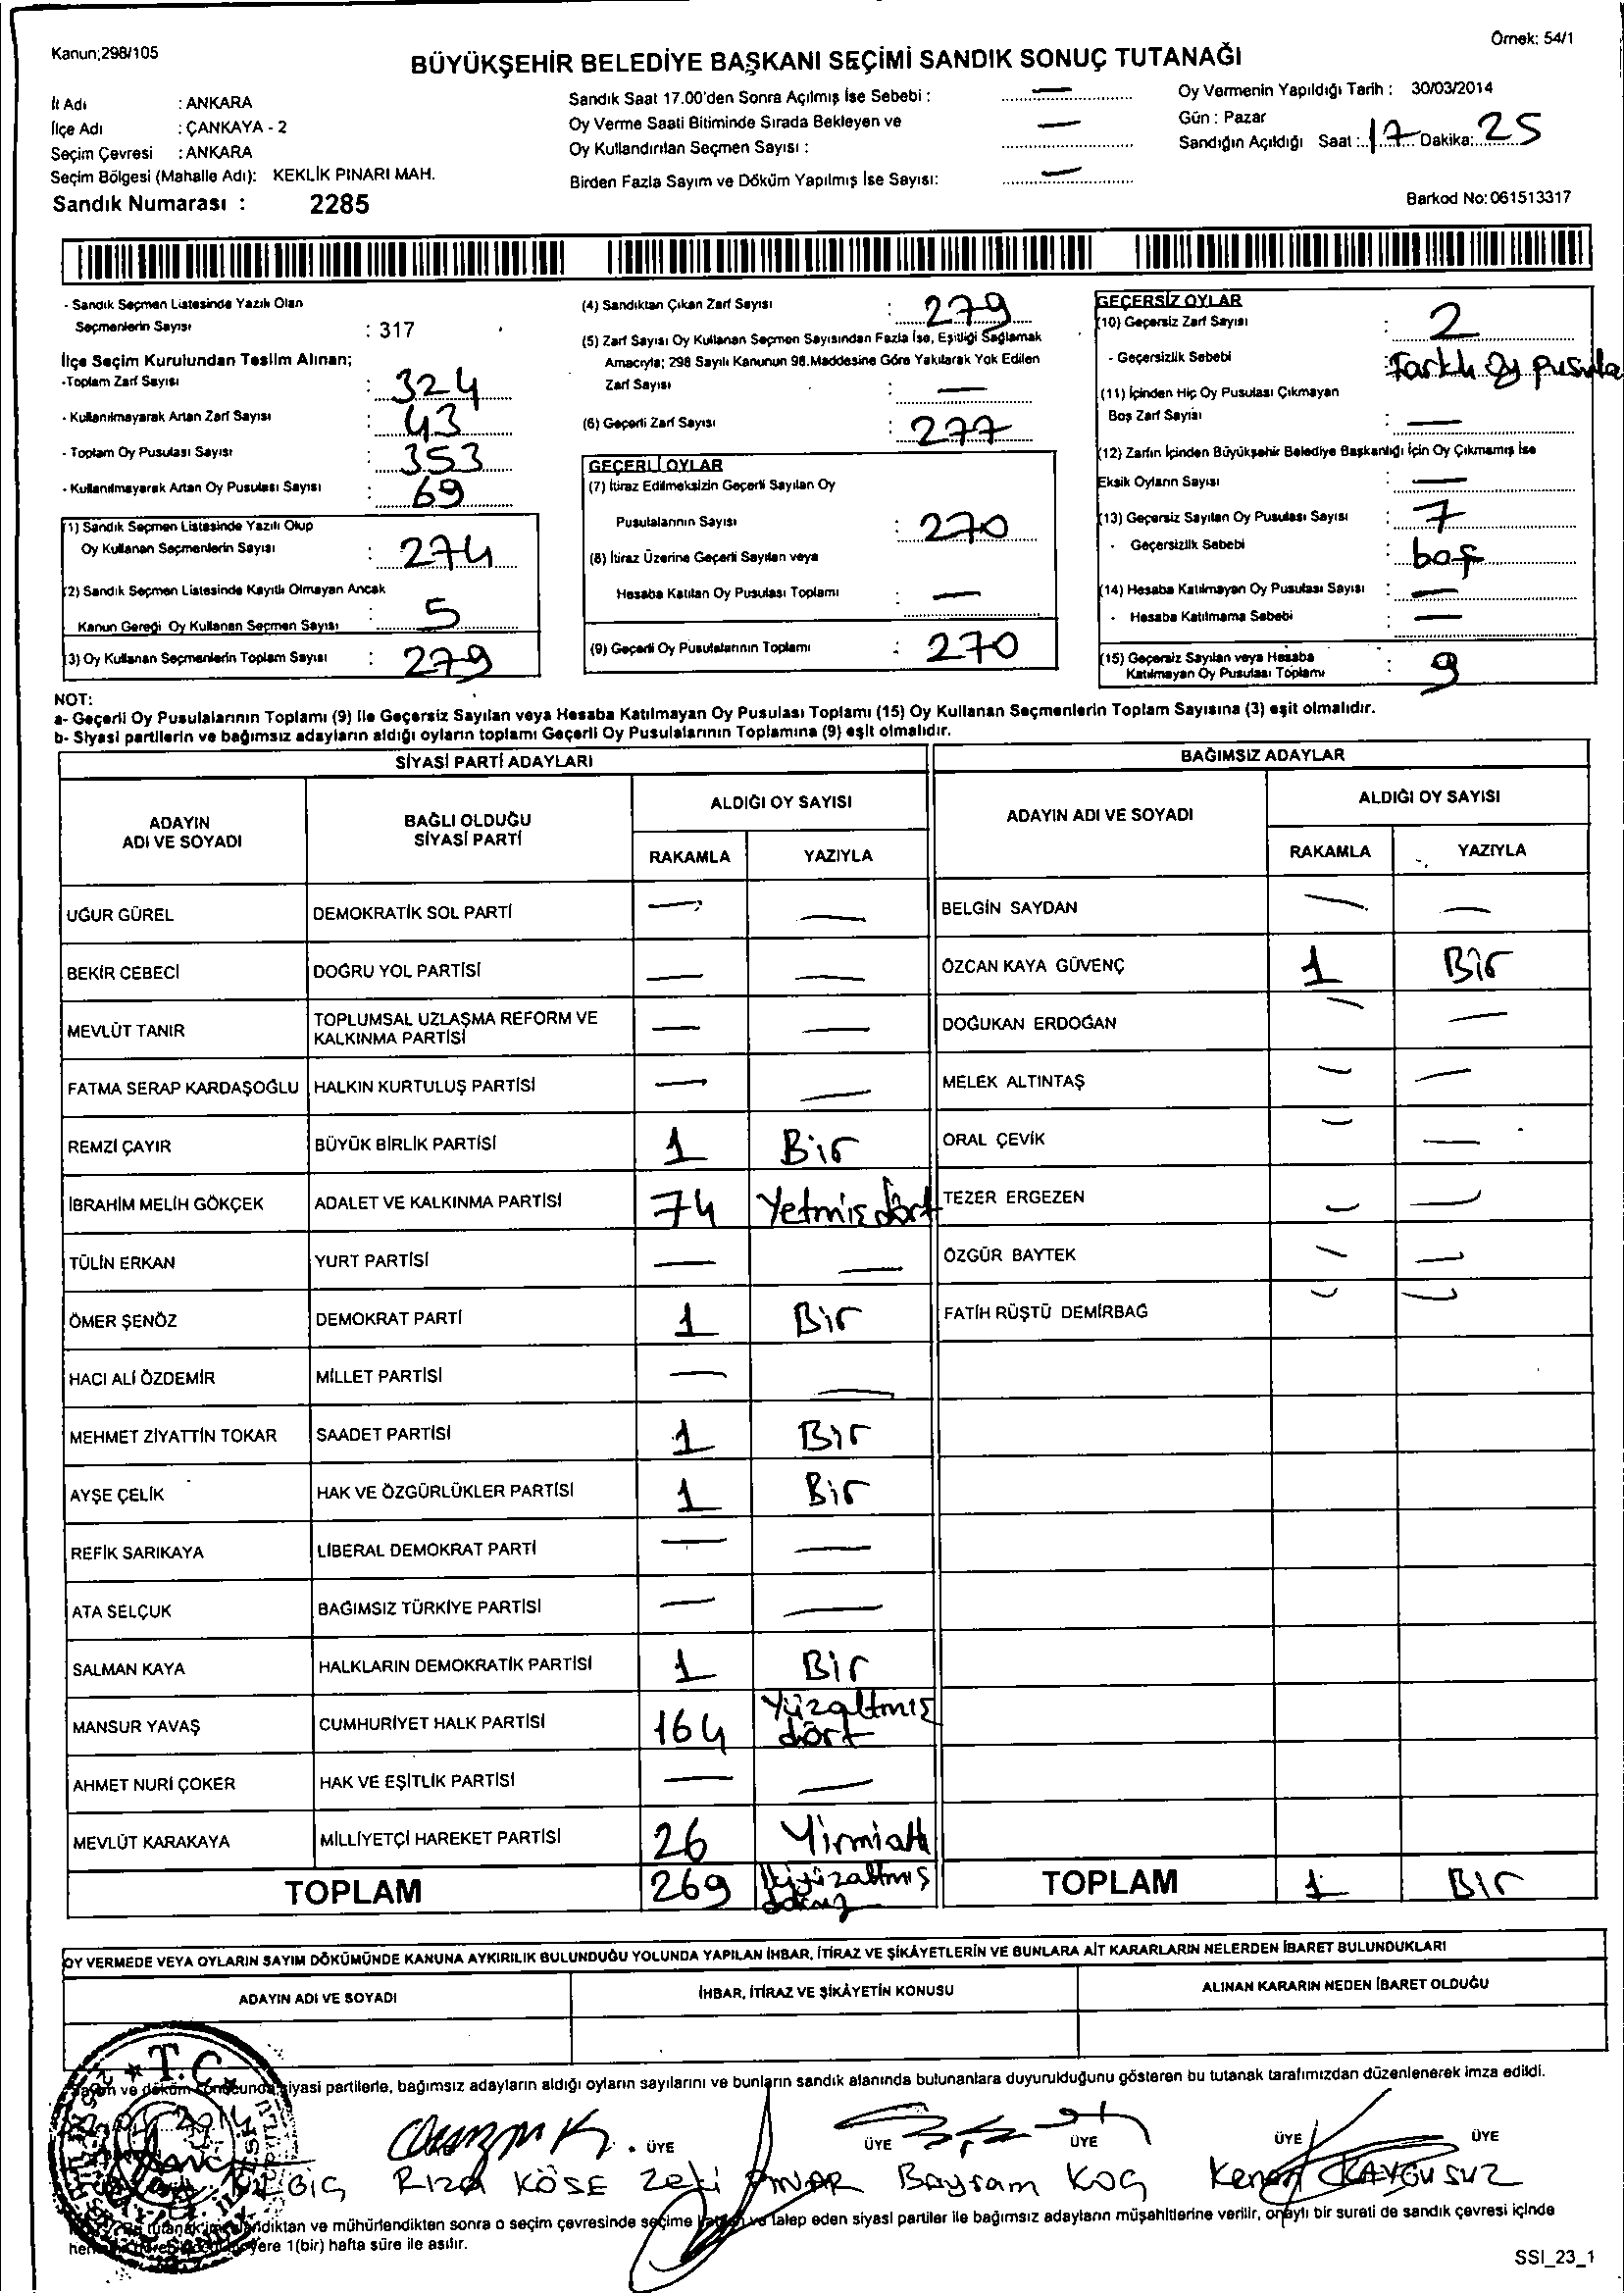 Kanun;298/105
Örnek: 54/1
BÜYÜKŞEHİR BELEDİYE BAŞKANI SEÇİMİ SANDIK SONUÇ TUTANAĞI
İl Adı : ANKARA
İlçe Adı : ÇANKAYA - 2
Seçim Çevresi : ANKARA
Seçim Bölgesi (Mahalle Adı): KEKLİK PINARI MAH.
Sandık Numarası : 2285
Sandık Saat 17.00'den Sonra Açılmış İse Sebebi : —
Oy Verme Saati Bitiminde Sırada Bekleyen ve
Oy Kullandırılan Seçmen Sayısı : —
Birden Fazla Sayım ve Döküm Yapılmış İse Sayısı: —
Oy Vermenin Yapıldığı Tarih : 30/03/2014
Gün : Pazar
Sandığın Açıldığı Saat : 17 Dakika: 25
Barkod No: 061513317
- Sandık Seçmen Listesinde Yazılı Olan
Seçmenlerin Sayısı : 317
İlçe Seçim Kurulundan Teslim Alınan;
-Toplam Zarf Sayısı : 324
- Kullanılmayarak Artan Zarf Sayısı : 43
- Toplam Oy Pusulası Sayısı : 353
- Kullanılmayarak Artan Oy Pusulası Sayısı : 69
(1) Sandık Seçmen Listesinde Yazılı Olup
Oy Kullanan Seçmenlerin Sayısı : 274
(2) Sandık Seçmen Listesinde Kayıtlı Olmayan Ancak
Kanun Gereği Oy Kullanan Seçmen Sayısı : 5
(3) Oy Kullanan Seçmenlerin Toplam Sayısı : 279
(4) Sandıktan Çıkan Zarf Sayısı : 279
(5) Zarf Sayısı Oy Kullanan Seçmen Sayısından Fazla İse, Eşitliği Sağlamak
Amacıyla; 298 Sayılı Kanunun 98.Maddesine Göre Yakılarak Yok Edilen
Zarf Sayısı : —
(6) Geçerli Zarf Sayısı : 277
GEÇERLİ OYLAR
(7) İtiraz Edilmeksizin Geçerli Sayılan Oy
Pusulalarının Sayısı : 270
(8) İtiraz Üzerine Geçerli Sayılan veya
Hesaba Katılan Oy Pusulası Toplamı : —
(9) Geçerli Oy Pusulalarının Toplamı : 270
GEÇERSİZ OYLAR
(10) Geçersiz Zarf Sayısı : 2
- Geçersizlik Sebebi : Farklı Oy pusula
(11) İçinden Hiç Oy Pusulası Çıkmayan
Boş Zarf Sayısı : —
(12) Zarfın İçinden Büyükşehir Belediye Başkanlığı İçin Oy Çıkmamış İse
Eksik Oyların Sayısı : —
(13) Geçersiz Sayılan Oy Pusulası Sayısı : 7
- Geçersizlik Sebebi : boş
(14) Hesaba Katılmayan Oy Pusulası Sayısı : —
- Hesaba Katılmama Sebebi : —
(15) Geçersiz Sayılan veya Hesaba
Katılmayan Oy Pusulası Toplamı : 9
NOT:
a- Geçerli Oy Pusulalarının Toplamı (9) ile Geçersiz Sayılan veya Hesaba Katılmayan Oy Pusulası Toplamı (15) Oy Kullanan Seçmenlerin Toplam Sayısına (3) eşit olmalıdır.
b- Siyasi partilerin ve bağımsız adayların aldığı oyların toplamı Geçerli Oy Pusulalarının Toplamına (9) eşit olmalıdır.
SİYASİ PARTİ ADAYLARI
ADAYIN
ADI VE SOYADI
BAĞLI OLDUĞU
SİYASİ PARTİ
ALDIĞI OY SAYISI
RAKAMLA YAZIYLA
UĞUR GÜREL DEMOKRATİK SOL PARTİ — —
BEKİR CEBECİ DOĞRU YOL PARTİSİ — —
MEVLÜT TANIR TOPLUMSAL UZLAŞMA REFORM VE
KALKINMA PARTİSİ — —
FATMA SERAP KARDAŞOĞLU HALKIN KURTULUŞ PARTİSİ — —
REMZİ ÇAYIR BÜYÜK BİRLİK PARTİSİ 1 Bir
İBRAHİM MELİH GÖKÇEK ADALET VE KALKINMA PARTİSİ 74 Yetmiş dört
TÜLİN ERKAN YURT PARTİSİ — —
ÖMER ŞENÖZ DEMOKRAT PARTİ 1 Bir
HACI ALİ ÖZDEMİR MİLLET PARTİSİ — —
MEHMET ZİYATTİN TOKAR SAADET PARTİSİ 1 Bir
AYŞE ÇELİK HAK VE ÖZGÜRLÜKLER PARTİSİ 1 Bir
REFİK SARIKAYA LİBERAL DEMOKRAT PARTİ — —
ATA SELÇUK BAĞIMSIZ TÜRKİYE PARTİSİ — —
SALMAN KAYA HALKLARIN DEMOKRATİK PARTİSİ 1 Bir
MANSUR YAVAŞ CUMHURİYET HALK PARTİSİ 164 Yüzaltmış
dört
AHMET NURİ ÇOKER HAK VE EŞİTLİK PARTİSİ — —
MEVLÜT KARAKAYA MİLLİYETÇİ HAREKET PARTİSİ 26 Yirmialtı
TOPLAM 269 İkiyüzaltmış
dokuz
BAĞIMSIZ ADAYLAR
ADAYIN ADI VE SOYADI
ALDIĞI OY SAYISI
RAKAMLA YAZIYLA
BELGİN SAYDAN — —
ÖZCAN KAYA GÜVENÇ 1 Bir
DOĞUKAN ERDOĞAN — —
MELEK ALTINTAŞ — —
ORAL ÇEVİK — —
TEZER ERGEZEN — —
ÖZGÜR BAYTEK — —
FATİH RÜŞTÜ DEMİRBAĞ — —
TOPLAM 1 Bir
OY VERMEDE VEYA OYLARIN SAYIM DÖKÜMÜNDE KANUNA AYKIRILIK BULUNDUĞU YOLUNDA YAPILAN İHBAR, İTİRAZ VE ŞİKÂYETLERİN VE BUNLARA AİT KARARLARIN NELERDEN İBARET BULUNDUKLARI
ADAYIN ADI VE SOYADI İHBAR, İTİRAZ VE ŞİKÂYETİN KONUSU ALINAN KARARIN NEDEN İBARET OLDUĞU
T.C.
siyasi partilerle, bağımsız adayların aldığı oyların sayılarını ve bunların sandık alanında bulunanlara duyurulduğunu gösteren bu tutanak tarafımızdan düzenlenerek imza edildi.
ÜYE ÜYE ÜYE ÜYE ÜYE
Rıza KÖSE Zeki Bayram KOÇ Kenan KAYGUSUZ
ve mühürlendikten sonra o seçim çevresinde seçime talep eden siyasi partiler ile bağımsız adayların müşahitlerine verilir, onaylı bir sureti de sandık çevresi içinde
yere 1(bir) hafta süre ile asılır.
SSI_23_1